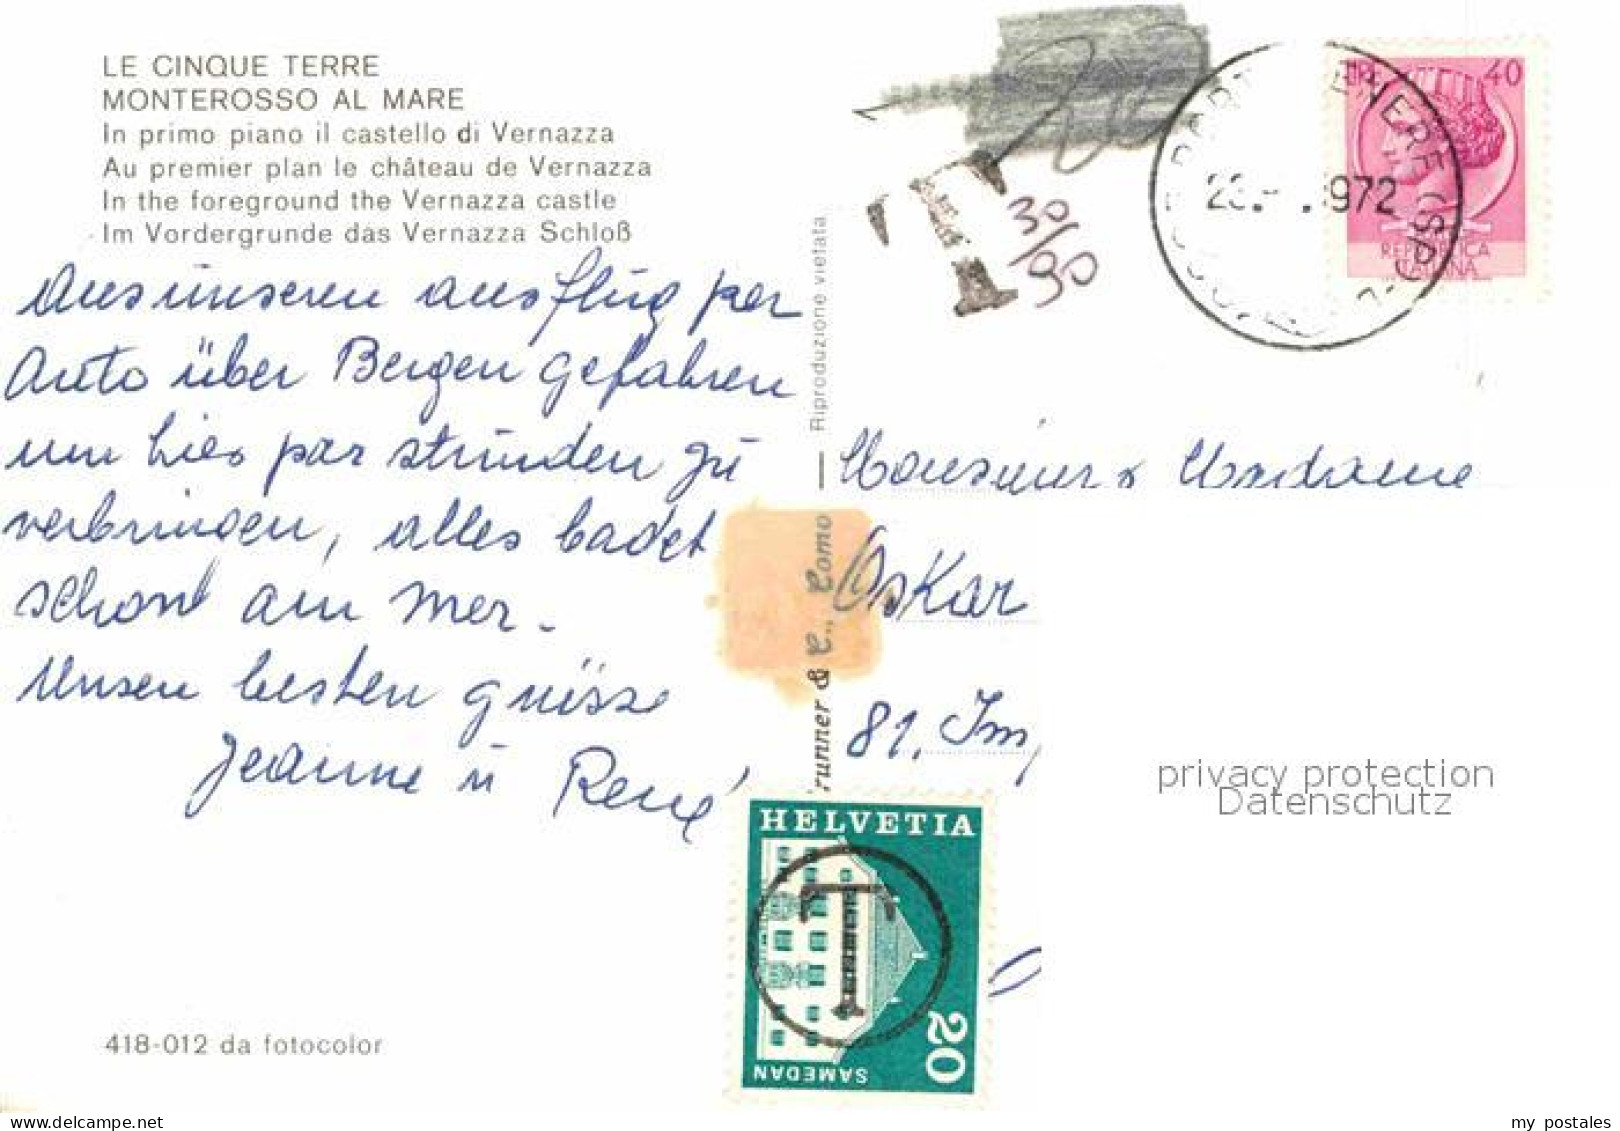 LE CINQUE TERRE
MONTEROSSO AL MARE
In primo piano il castello di Vernazza
Au premier plan le château de Vernazza
In the foreground the Vernazza castle
Im Vordergrunde das Vernazza Schloß
Aus unseren ausflug per
Auto über Bergen gefahren
um hier par stunden zu
verbringen, alles badet
schont am mer.
Unsen besten grüsse
Jeanne u René
418-012 da fotocolor
Riproduzione vietata
runner & C., Como
T
30/90
1972
40
REPUBBLICA
ITALIANA
Monsieur & Madame
Oskar
81. Im
privacy protection
Datenschutz
HELVETIA
T
20
SAMEDAN
my postales